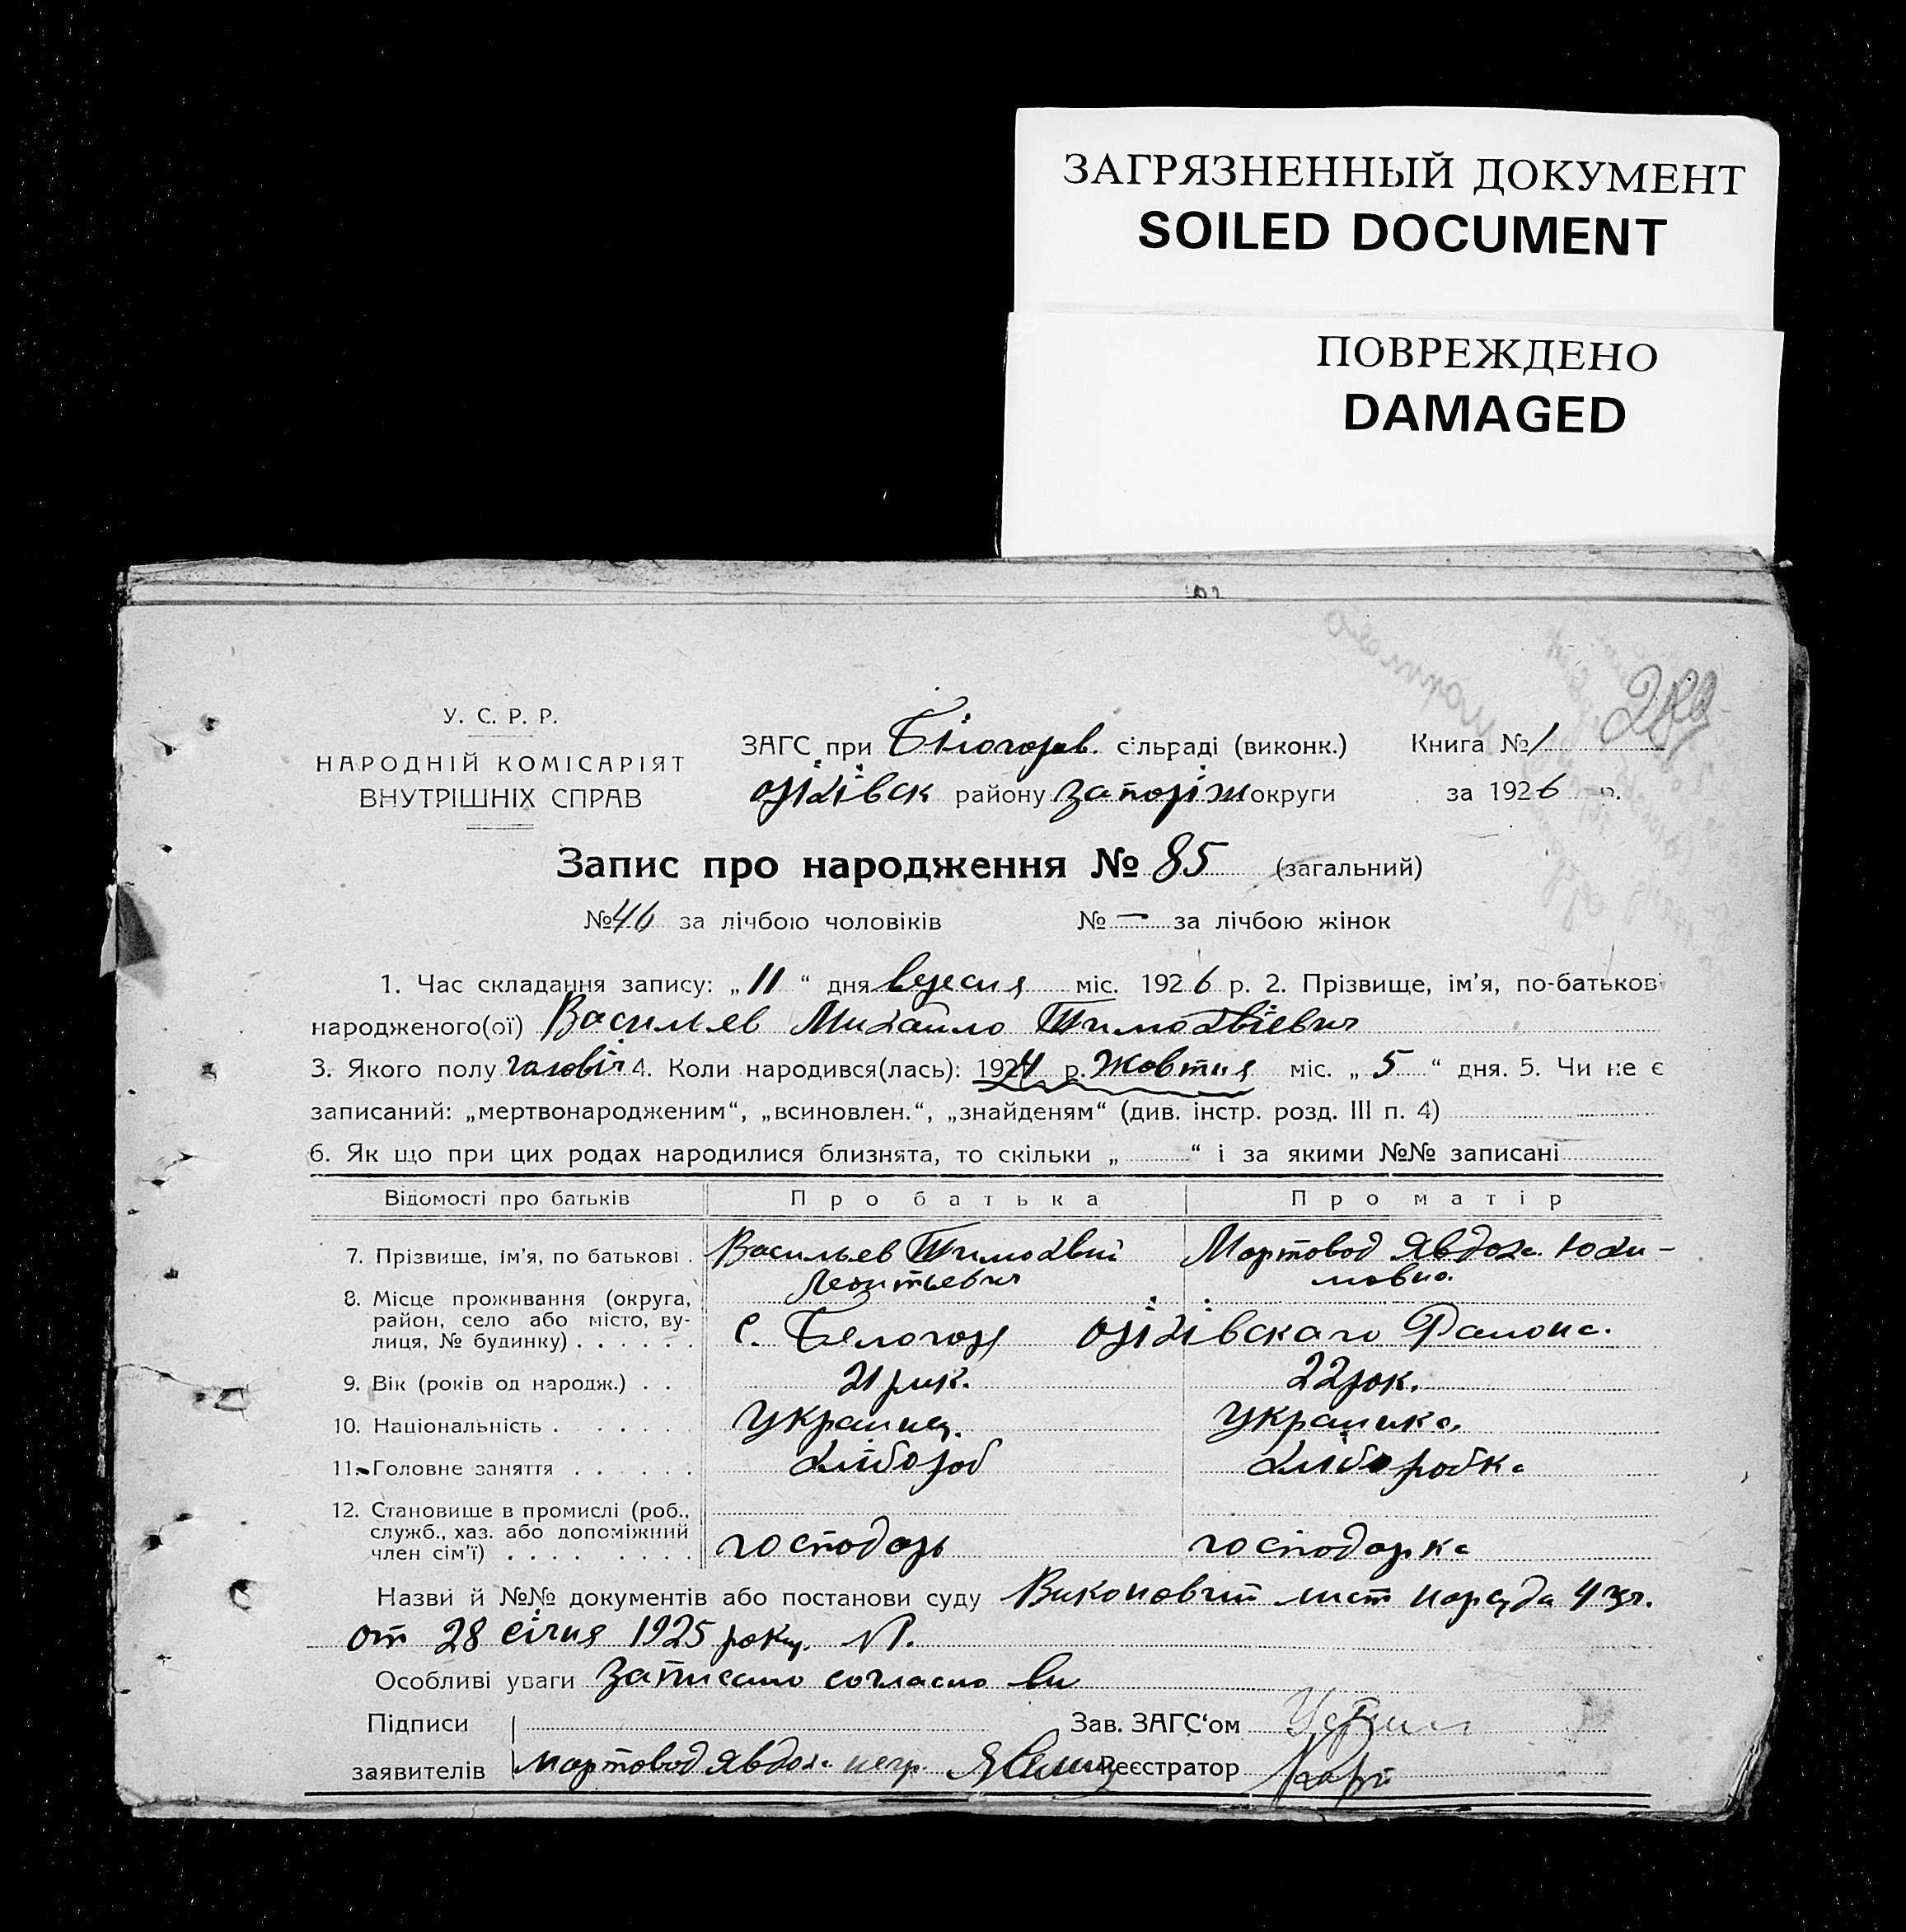 ЗАГРЯЗНЕННЫЙ ДОКУМЕНТ
SOILED DOCUMENT
ПОВРЕЖДЕНО
DAMAGED
У. С. Р. Р.
НАРОДНІЙ КОМІСАРІЯТ
ВНУТРІШНІХ СПРАВ
ЗАГС при Білогорів. сільраді (виконк.) Книга № 1
оріхівск району запоріж округи за 1926 р.
Запис про народження № 85 (загальний)
№ 46 за лічбою чоловіків № — за лічбою жінок
1. Час складання запису: „ 11 “ дня вересня міс. 1926 р. 2. Прізвище, ім'я, по-батькові
народженого(ої) Васильев Михайло Тимохвіевич
3. Якого полу чоловіч 4. Коли народився(лась): 1924 р. Жовтня міс. „ 5 “ дня. 5. Чи не є
записаний: „мертвонародженим“, „всиновлен.“, „знайденям“ (див. інстр. розд. III п. 4)
6. Як що при цих родах народилися близнята, то скільки „ “ і за якими №№ записані
Відомості про батьків Про батька Про матір
7. Прізвище, ім'я, по батькові . Васильев Тимохвій Леонтьевич Мартовод Явдоха Юхимовна
8. Місце проживання (округа,
район, село або місто, вулиця, № будинку) . . . . . . с. Белогоря оріхівскаго Району.
9. Вік (років од народж.) . . 21 рік. 22 рок.
10. Національність . . . . . . Украинец. Украинка
11. Головне заняття . . . . . . хлібороб хліборобка
12. Становище в промислі (роб.,
служб., хаз. або допоміжний
член сім'ї) . . . . . . . . господарь господарка
Назви й №№ документів або постанови суду Виконовчий лист нарсуда
от 28 січня 1925 року. №.
Особливі уваги Записано согласно ви
Підписи Зав. ЗАГС'ом
заявителів Мартовод Явдоха негр. Реєстратор